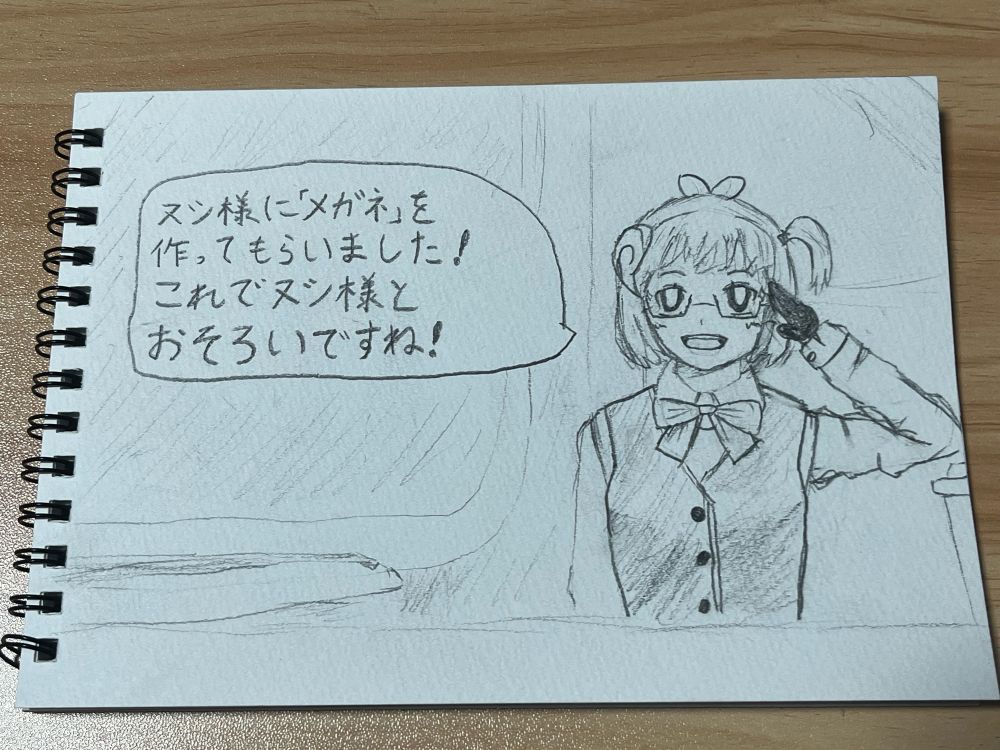 ヌシ様に「メガネ」を
作ってもらいました!
これでヌシ様と
おそろいですね!